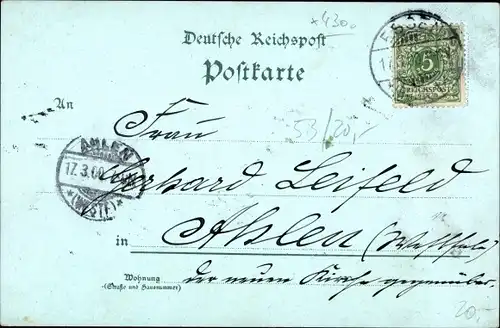 *430.-
Deutsche Reichspost
Postkarte
ESSEN
5
REICHSPOST
An
Frau
53/20,-
AHLEN
17.3.00
*(WESTF)*
Gerhard Leifeld
in Ahlen (Westfalen)
Wohnung der neuen Kirche gegenüber.
(Straße und Hausnummer)
20,-